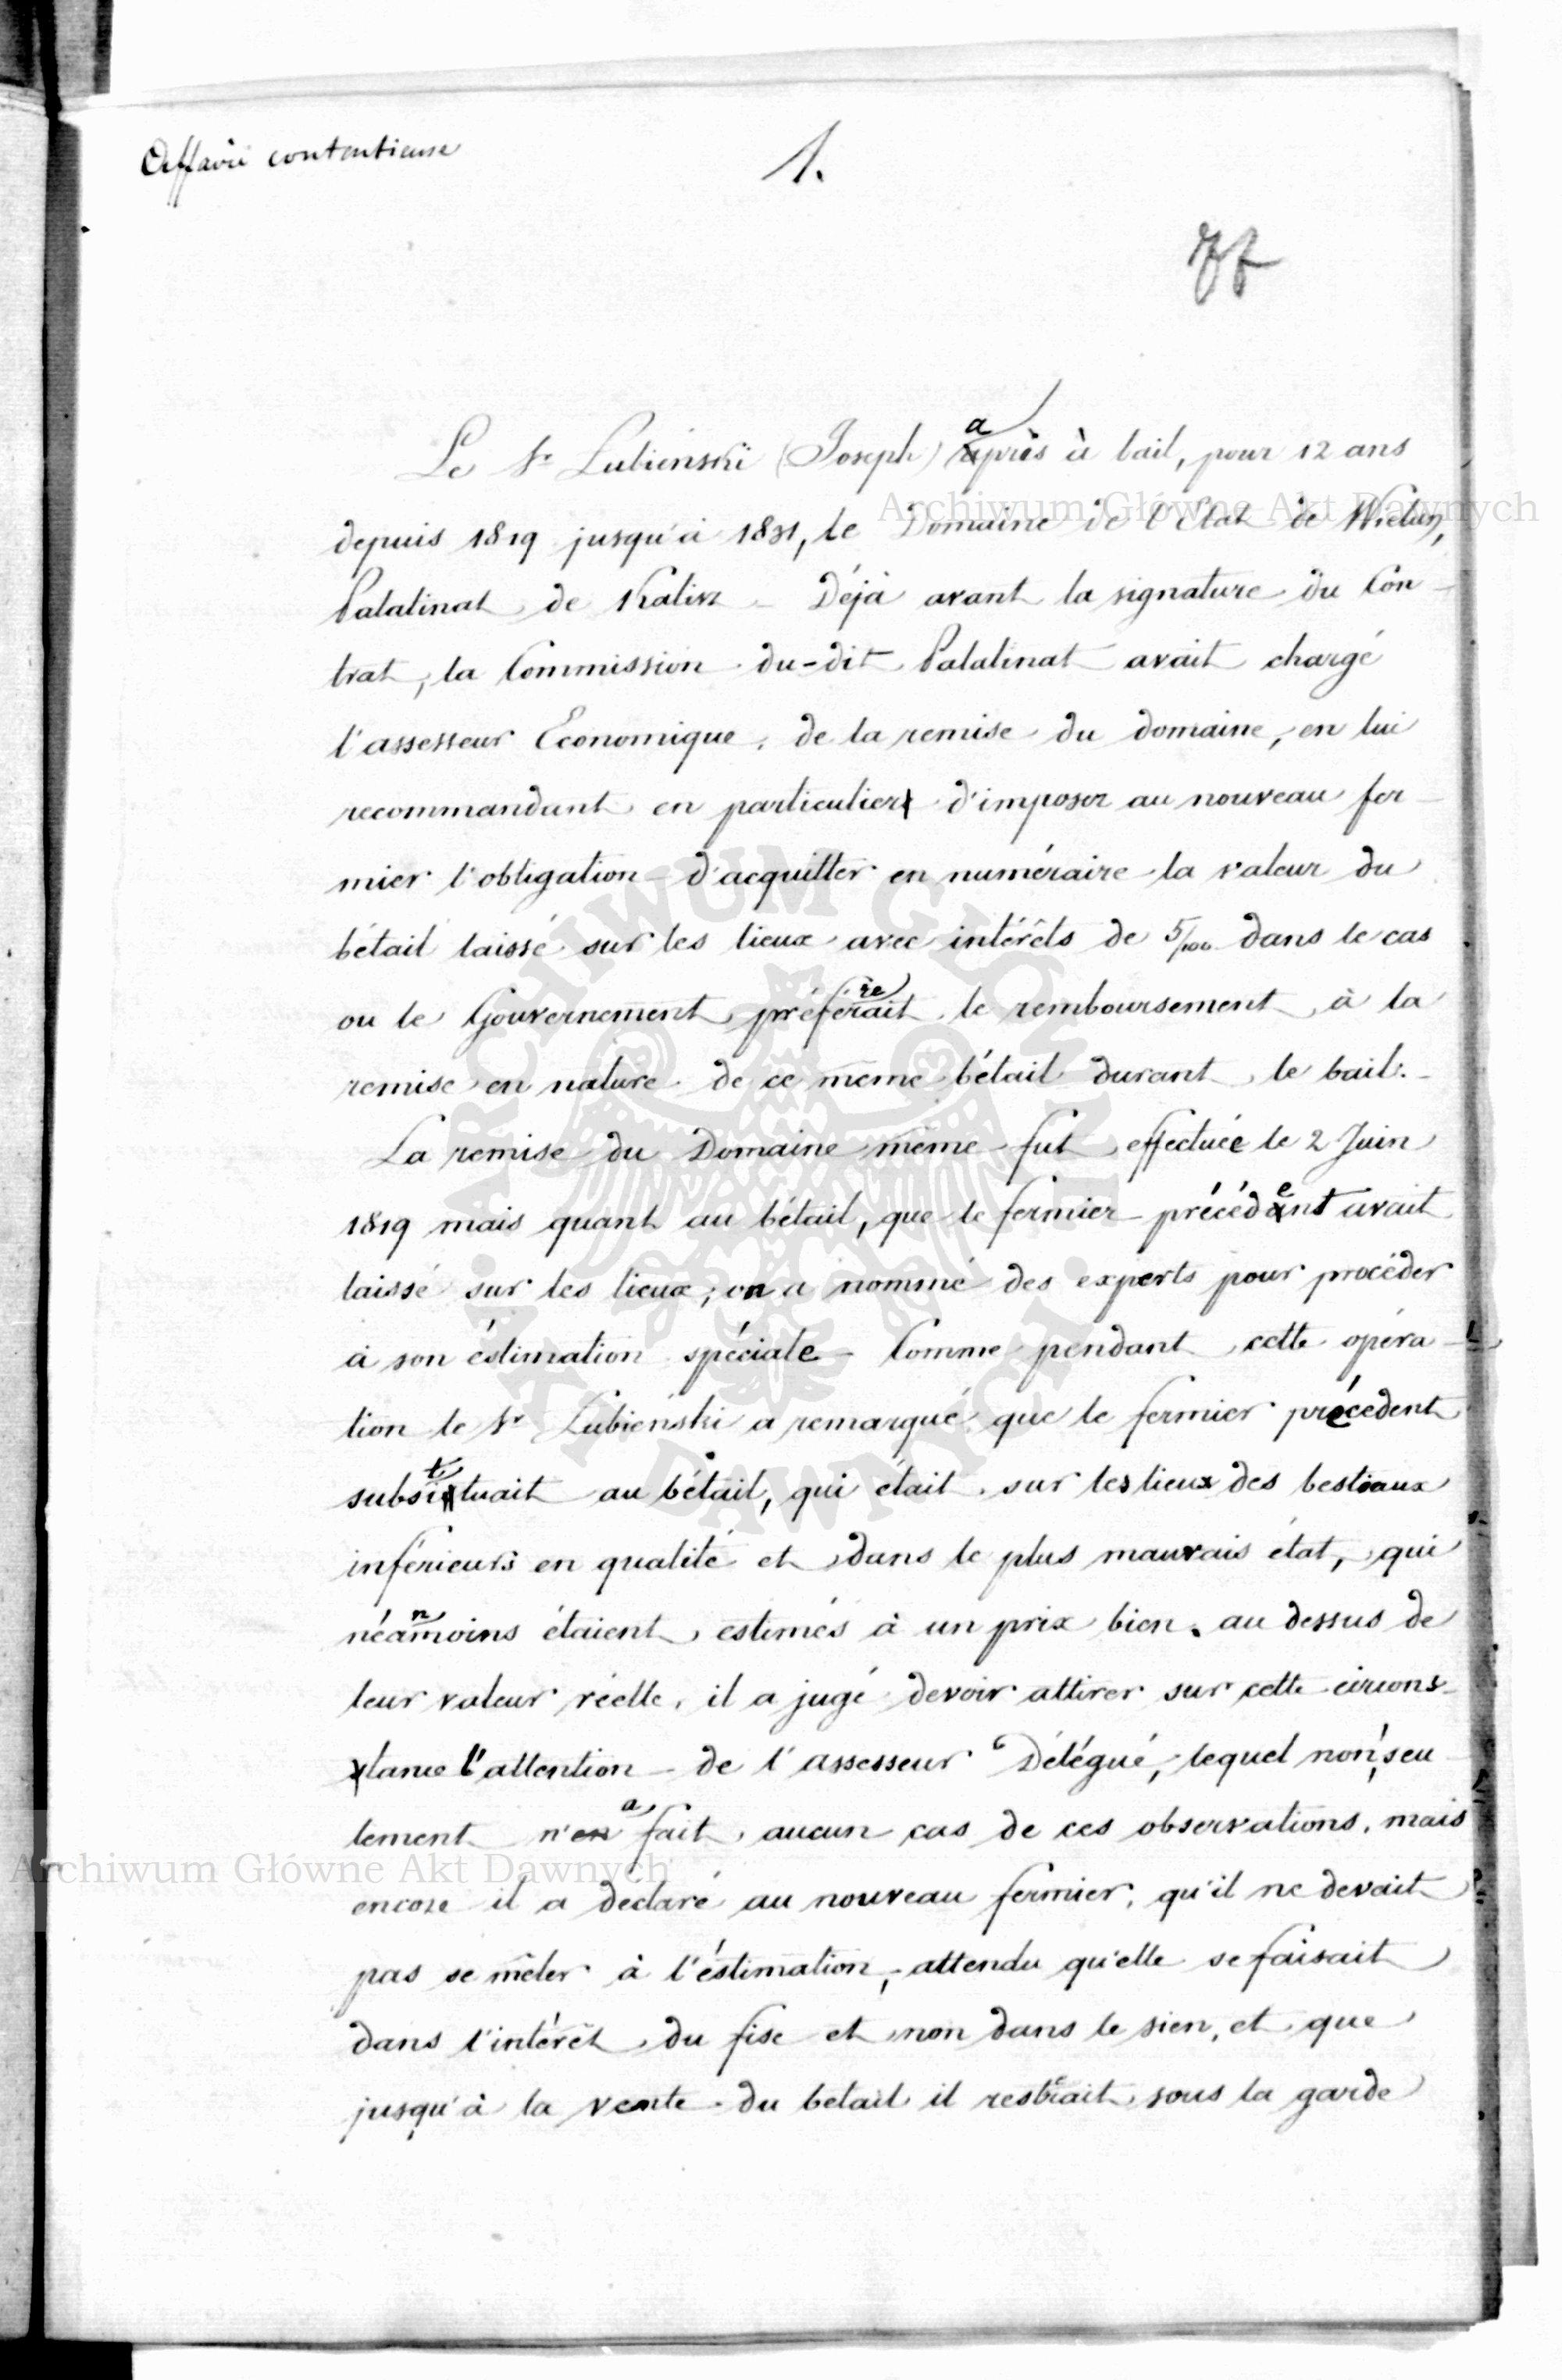 Affaire contentieuse
1.
Le Sr Lubieński (Joseph) a pris à bail, pour 12 ans
depuis 1819 jusqu'à 1831, le Domaine de l'Etat de Wielun,
Palatinat de Kalisz – Déjà avant la signature du Con-
trat, la Commission du-dit Palatinat avait chargé
l'assesseur Economique, de la remise du domaine, en lui
recommandant en particulier d'imposer au nouveau fer-
mier l'obligation d'acquitter en numéraire la valeur du
bétail laissé sur les lieux avec intérêts de 5/100 dans le cas
ou le Gouvernement préférerait le remboursement, à la
remise en nature de ce même bétail durant le bail.–
La remise du Domaine même fut effectuée le 2 Juin
1819 mais quant au bétail, que le fermier précédent avait
laissé sur les lieux, on a nommé des experts pour procéder
à son éstimation spéciale – Comme pendant cette opéra-
tion le Sr Lubieński a remarqué que le fermier précédent
substituait au bétail, qui était sur les lieux des bestiaux
inférieurs en qualité et dans le plus mauvais état, qui
néanmoins étaient estimés à un prix bien au dessus de
leur valeur réelle, il a jugé devoir attirer sur cette circons-
tance l'attention de l'assesseur Délégué, lequel non seu-
lement n'a fait aucun cas de ces observations, mais
encore il a declaré au nouveau fermier, qu'il ne devait
pas se mêler à l'éstimation, attendu qu'elle se faisait
dans l'intérêt du fisc et non dans le sien, et que
jusqu'à la vente du betail il resterait sous la garde
Archiwum Główne Akt Dawnych
Archiwum Główne Akt Dawnych
ARCHIWUM GŁÓWNE AKT DAWNYCH